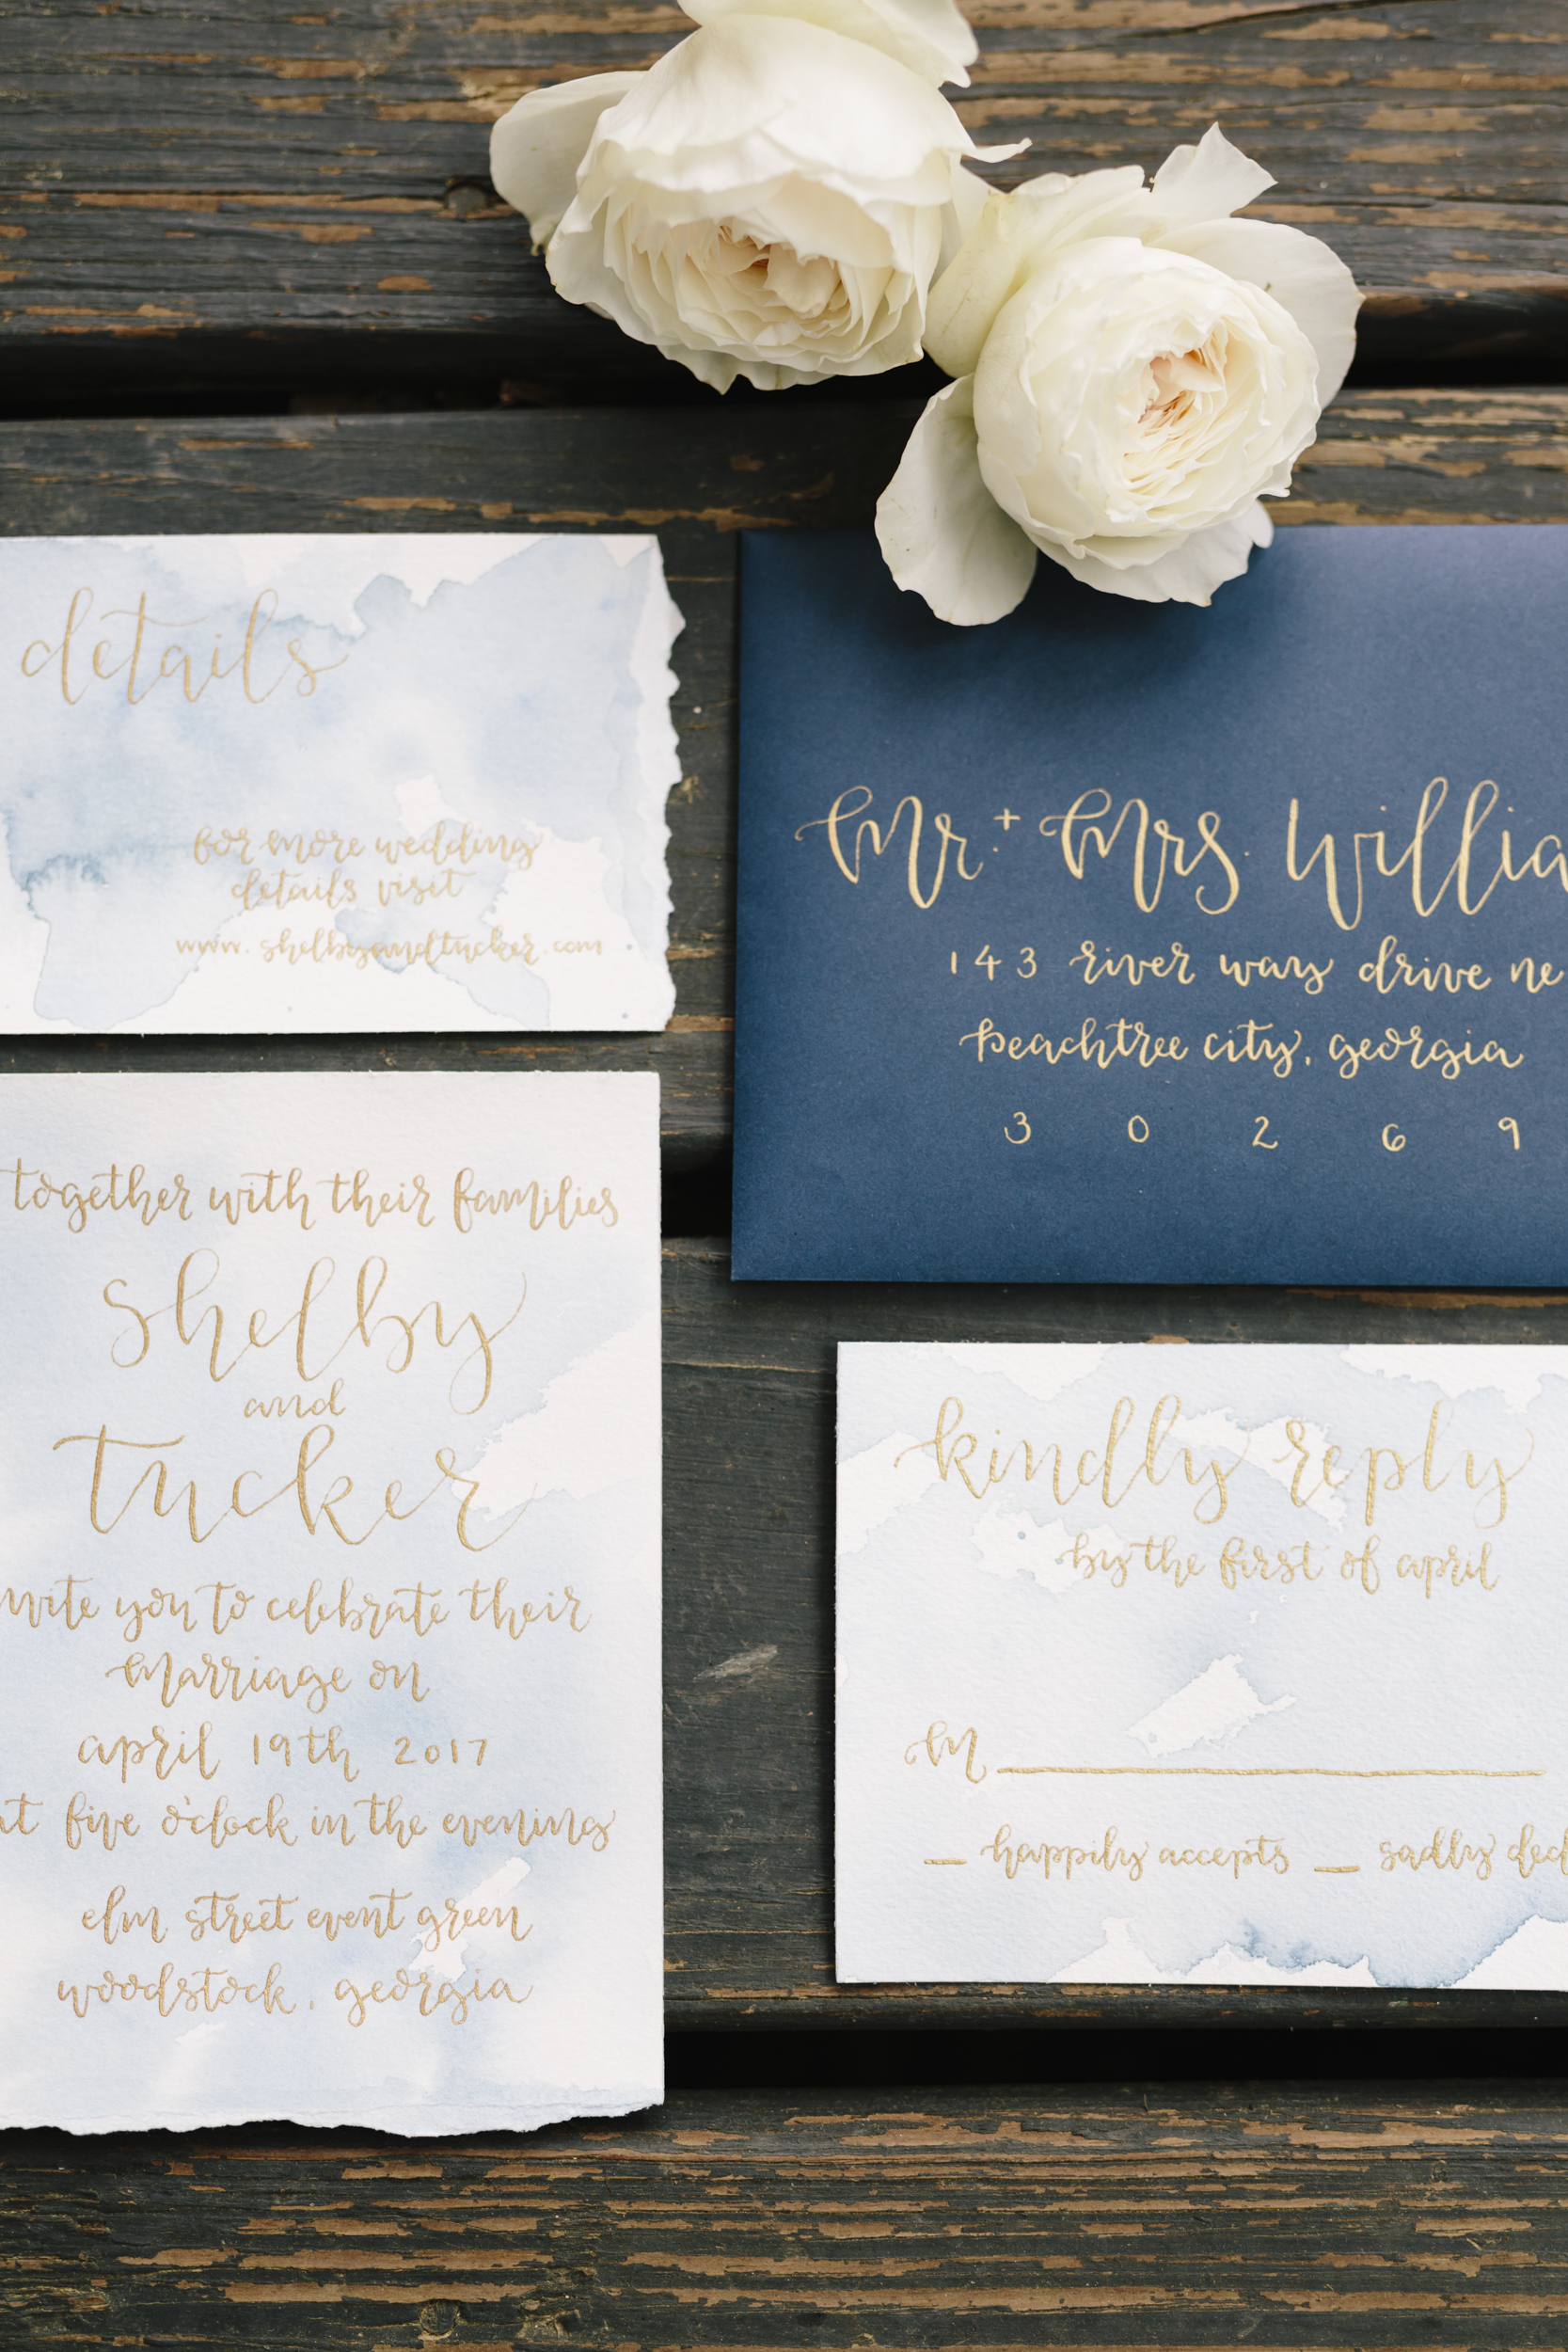 details
for more wedding
details visit
www.shelbyandtucker.com
together with their families
shelby
and
tucker
invite you to celebrate their
marriage on
april 19th 2017
at five o'clock in the evening
elm street event green
woodstock, georgia
Mr. + Mrs. Willia
143 river way drive ne
peachtree city, georgia
3 0 2 6 9
kindly reply
by the first of april
M
happily accepts sadly decl